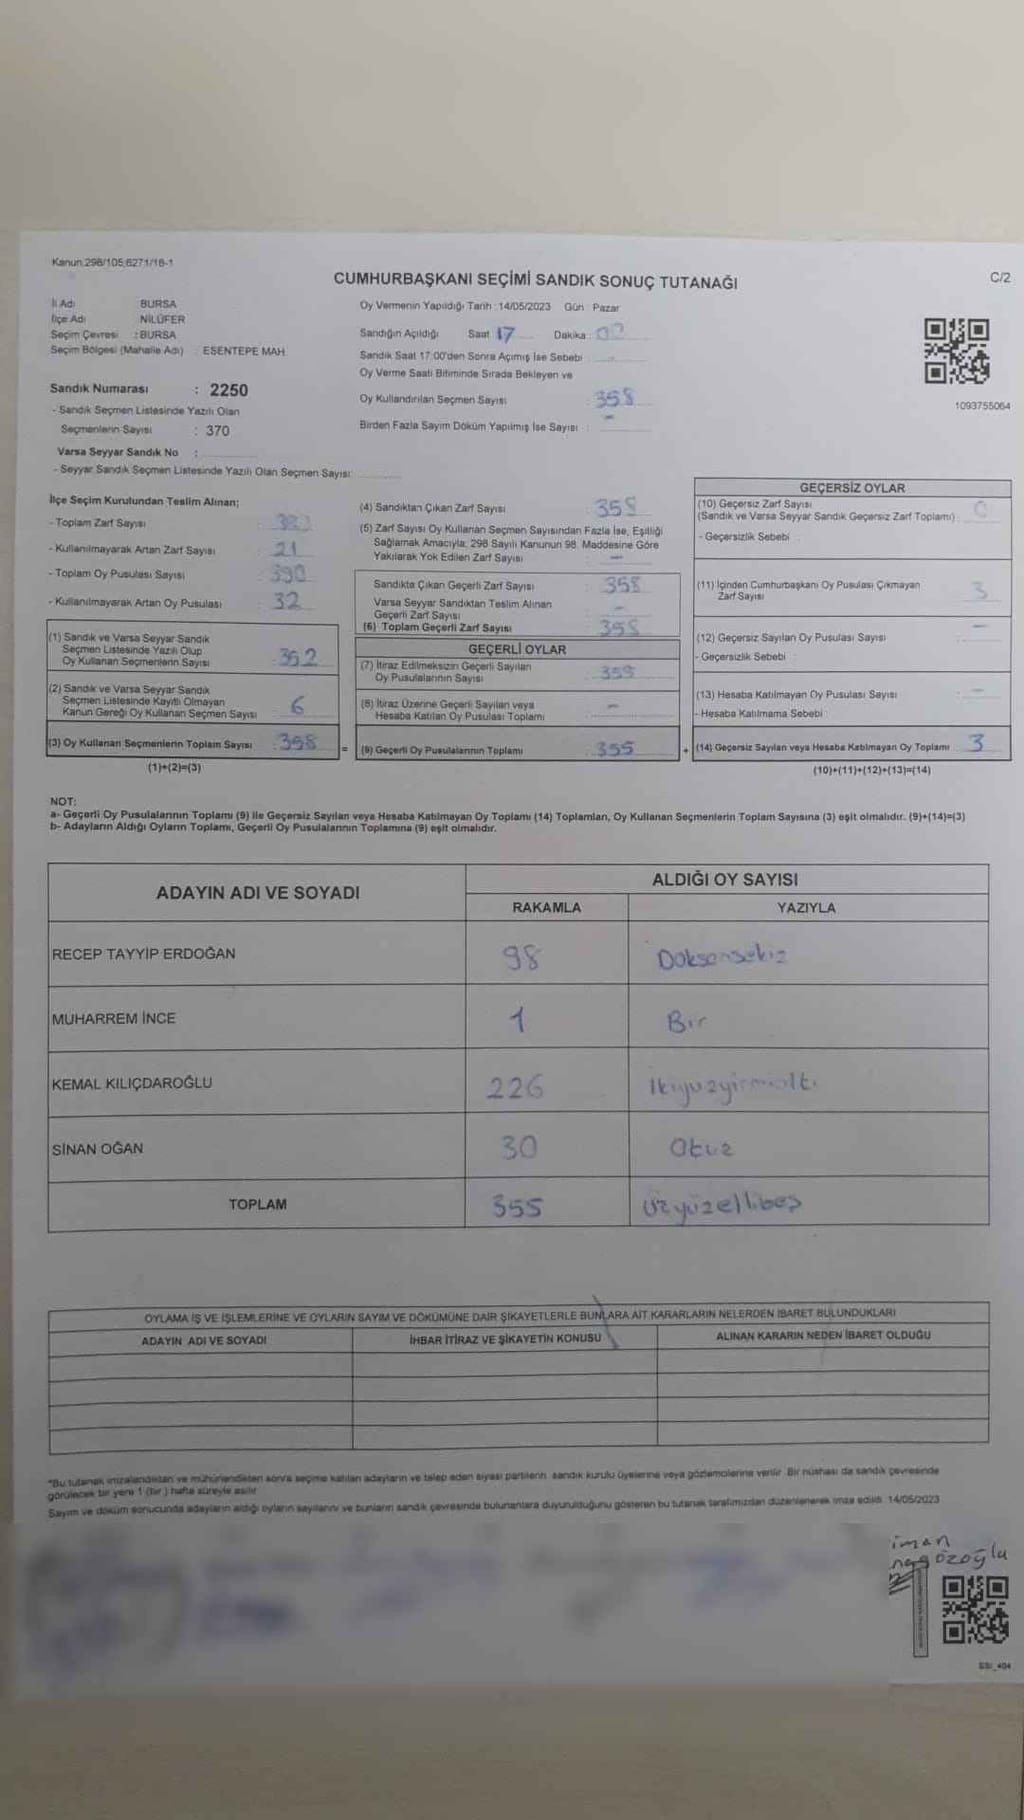 Kanun;298/105;6271/18-1
CUMHURBAŞKANI SEÇİMİ SANDIK SONUÇ TUTANAĞI
C/2
İl Adı BURSA
İlçe Adı NİLÜFER
Seçim Çevresi : BURSA
Seçim Bölgesi (Mahalle Adı) : ESENTEPE MAH
Sandık Numarası : 2250
- Sandık Seçmen Listesinde Yazılı Olan
Seçmenlerin Sayısı : 370
Varsa Seyyar Sandık No :
- Seyyar Sandık Seçmen Listesinde Yazılı Olan Seçmen Sayısı:
Oy Vermenin Yapıldığı Tarih :14/05/2023 Gün : Pazar
Sandığın Açıldığı Saat 17 Dakika : 00
Sandık Saat 17:00'den Sonra Açılmış İse Sebebi :
Oy Verme Saati Bitiminde Sırada Bekleyen ve
Oy Kullandırılan Seçmen Sayısı : 358
Birden Fazla Sayım Döküm Yapılmış İse Sayısı : -
1093755064
İlçe Seçim Kurulundan Teslim Alınan;
- Toplam Zarf Sayısı :
- Kullanılmayarak Artan Zarf Sayısı : 21
- Toplam Oy Pusulası Sayısı : 390
- Kullanılmayarak Artan Oy Pusulası : 32
(1) Sandık ve Varsa Seyyar Sandık
Seçmen Listesinde Yazılı Olup
Oy Kullanan Seçmenlerin Sayısı : 352
(2) Sandık ve Varsa Seyyar Sandık
Seçmen Listesinde Kayıtlı Olmayan
Kanun Gereği Oy Kullanan Seçmen Sayısı : 6
(3) Oy Kullanan Seçmenlerin Toplam Sayısı : 358
(1)+(2)=(3)
=
(4) Sandıktan Çıkan Zarf Sayısı : 358
(5) Zarf Sayısı Oy Kullanan Seçmen Sayısından Fazla İse, Eşitliği
Sağlamak Amacıyla; 298 Sayılı Kanunun 98. Maddesine Göre
Yakılarak Yok Edilen Zarf Sayısı : -
Sandıkta Çıkan Geçerli Zarf Sayısı : 358
Varsa Seyyar Sandıktan Teslim Alınan
Geçerli Zarf Sayısı : -
(6) Toplam Geçerli Zarf Sayısı : 358
GEÇERLİ OYLAR
(7) İtiraz Edilmeksizin Geçerli Sayılan
Oy Pusulalarının Sayısı : 355
(8) İtiraz Üzerine Geçerli Sayılan veya
Hesaba Katılan Oy Pusulası Toplamı : -
(9) Geçerli Oy Pusulalarının Toplamı : 355
+
GEÇERSİZ OYLAR
(10) Geçersiz Zarf Sayısı
(Sandık ve Varsa Seyyar Sandık Geçersiz Zarf Toplamı) : 0
- Geçersizlik Sebebi :
(11) İçinden Cumhurbaşkanı Oy Pusulası Çıkmayan
Zarf Sayısı : 3
(12) Geçersiz Sayılan Oy Pusulası Sayısı : -
- Geçersizlik Sebebi :
(13) Hesaba Katılmayan Oy Pusulası Sayısı : -
- Hesaba Katılmama Sebebi :
(14) Geçersiz Sayılan veya Hesaba Katılmayan Oy Toplamı : 3
(10)+(11)+(12)+(13)=(14)
NOT:
a- Geçerli Oy Pusulalarının Toplamı (9) ile Geçersiz Sayılan veya Hesaba Katılmayan Oy Toplamı (14) Toplamları, Oy Kullanan Seçmenlerin Toplam Sayısına (3) eşit olmalıdır. (9)+(14)=(3)
b- Adayların Aldığı Oyların Toplamı, Geçerli Oy Pusulalarının Toplamına (9) eşit olmalıdır.
ADAYIN ADI VE SOYADI
ALDIĞI OY SAYISI
RAKAMLA YAZIYLA
RECEP TAYYİP ERDOĞAN 98 Doksansekiz
MUHARREM İNCE 1 Bir
KEMAL KILIÇDAROĞLU 226 İkiyüzyirmialtı
SİNAN OĞAN 30 Otuz
TOPLAM 355 Üçyüzellibeş
OYLAMA İŞ VE İŞLEMLERİNE VE OYLARIN SAYIM VE DÖKÜMÜNE DAİR ŞİKAYETLERLE BUNLARA AİT KARARLARIN NELERDEN İBARET BULUNDUKLARI
ADAYIN ADI VE SOYADI İHBAR İTİRAZ VE ŞİKAYETİN KONUSU ALINAN KARARIN NEDEN İBARET OLDUĞU
*Bu tutanak imzalandıktan ve mühürlendikten sonra seçime katılan adayların ve talep eden siyasi partilerin, sandık kurulu üyelerine veya gözlemcilerine verilir. Bir nüshası da sandık çevresinde
görülecek bir yere 1 (bir ) hafta süreyle asılır.
Sayım ve döküm sonucunda adayların aldığı oyların sayılarını ve bunların sandık çevresinde bulunanlara duyurulduğunu gösteren bu tutanak tarafımızdan düzenlenerek imza edildi. 14/05/2023
iman
özoğlu
SSI_404